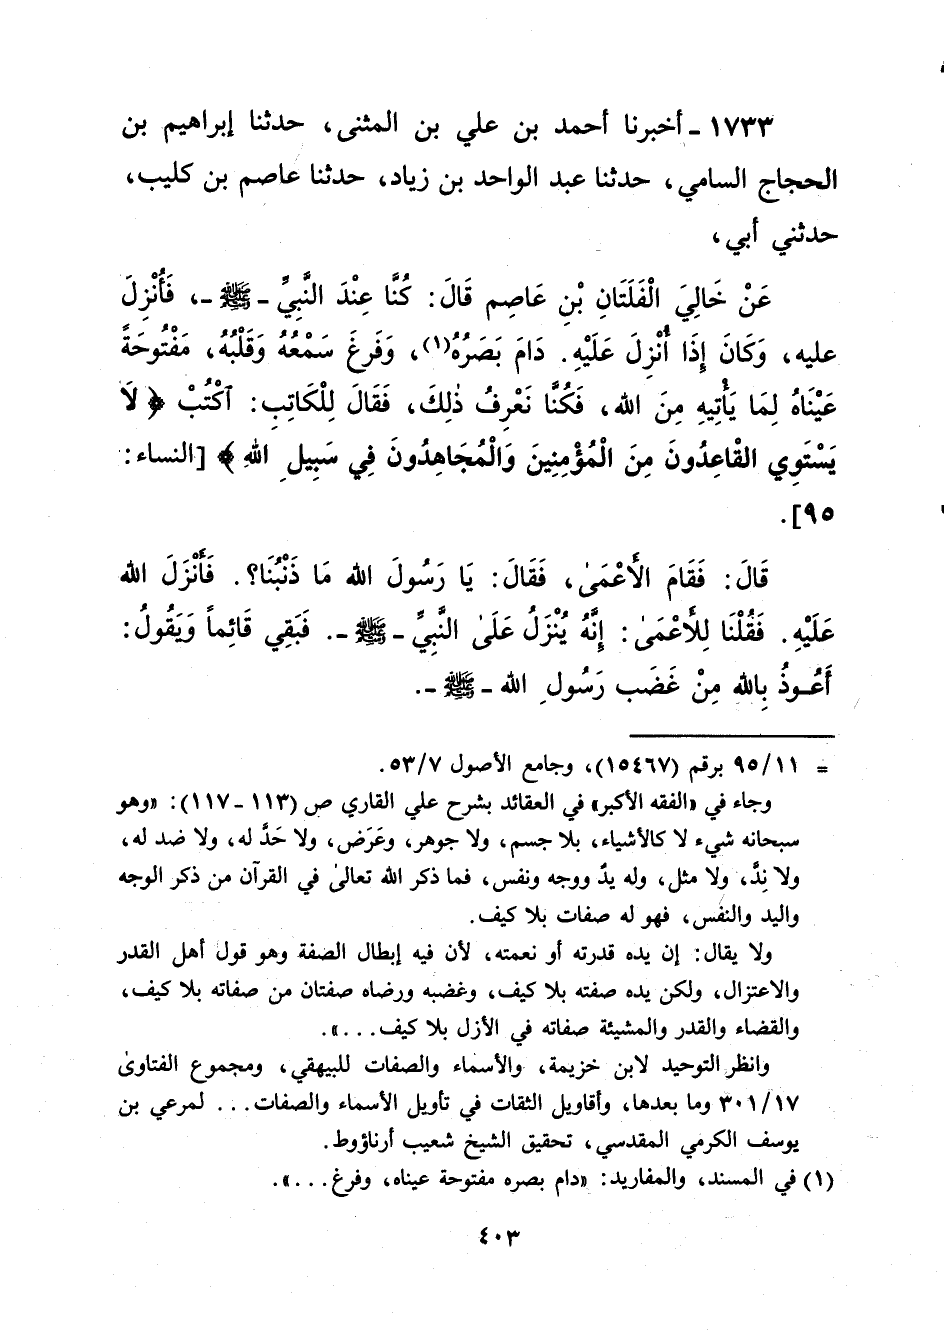 ١٧٣٣ - أخبرنا أحمد بن علي بن المثنى، حدثنا إبراهيم بن
الحجاج السامي، حدثنا عبد الواحد بن زياد، حدثنا عاصم بن كليب،
حدثني أبي،
عَنْ خَالِيَ الْفَلَتَانِ بْنِ عَاصِمٍ قَالَ: كُنَّا عِنْدَ النَّبِيِّ - ﷺ -، فَأُنْزِلَ
عليه، وَكَانَ إِذَا أُنْزِلَ عَلَيْهِ. دَامَ بَصَرُهُ(١)، وَفَرِغَ سَمْعُهُ وَقَلْبُهُ، مَفْتُوحَةً
عَيْنَاهُ لِمَا يَأْتِيهِ مِنَ الله، فَكُنَّا نَعْرِفُ ذٰلِكَ، فَقَالَ لِلْكَاتِبِ: ٱكْتُبْ ﴿لَا
يَسْتَوِي القْاعِدُونَ مِنَ الْمُؤْمِنِينَ وَالْمُجَاهِدُونَ فِي سَبِيلِ اللهِ﴾ [النساء:
٩٥].
قَالَ: فَقَامَ الأَعْمَىٰ، فَقَالَ: يَا رَسُولَ الله مَا ذَنْبُنَا؟. فَأَنْزَلَ الله
عَلَيْهِ. فَقُلْنَا لِلأَعْمَىٰ: إِنَّهُ يُنْزَلُ عَلَىٰ النَّبِيِّ - ﷺ -. فَبَقِي قَائِماً وَيَقُولُ:
أَعُـوذُ بِاللهِ مِنْ غَضَبِ رَسُولِ الله - ﷺ -.
= ٩٥/١١ برقم (١٥٤٦٧)، وجامع الأصول ٥٣/٧.
وجاء في «الفقه الأكبر» في العقائد بشرح علي القاري ص (١١٣ - ١١٧): «وهو
سبحانه شيء لا كالأشياء، بلا جسم، ولا جوهر، وعَرَض، ولا حَدَّ له، ولا ضد له،
ولا نِدَّ، ولا مثل، وله يدٌ ووجه ونفس، فما ذكر الله تعالىٰ في القرآن من ذكر الوجه
واليد والنفس، فهو له صفات بلا كيف.
ولا يقال: إن يده قدرته أو نعمته، لأن فيه إبطال الصفة وهو قول أهل القدر
والاعتزال، ولكن يده صفته بلا كيف، وغضبه ورضاه صفتان من صفاته بلا كيف،
والقضاء والقدر والمشيئة صفاته في الأزل بلا كيف...».
وانظر التوحيد لابن خزيمة، والأسماء والصفات للبيهقي، ومجموع الفتاوىٰ
٣٠١/١٧ وما بعدها، وأقاويل الثقات في تأويل الأسماء والصفات... لمرعي بن
يوسف الكرمي المقدسي، تحقيق الشيخ شعيب أرناؤوط.
(١) في المسند، والمفاريد: «دام بصره مفتوحة عيناه، وفرغ...».
٤٠٣